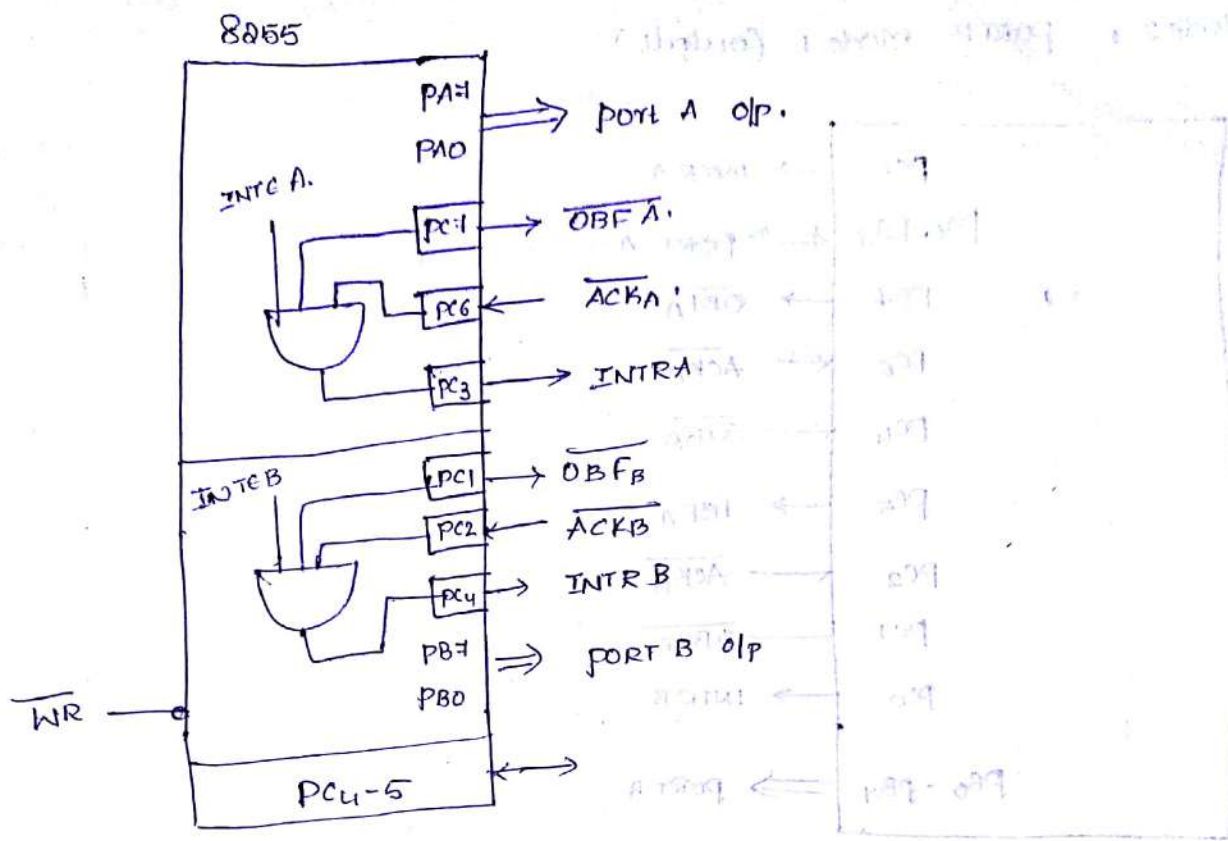 8255
PA7
PA0
port A o/p.
INTE A.
PC7
OBF A.
PC6
ACKA.
PC3
INTRA
INTEB
PC1
OBFB
PC2
ACKB
PC4
INTR B
PB7
PB0
PORT B o/p
WR
PC4-5